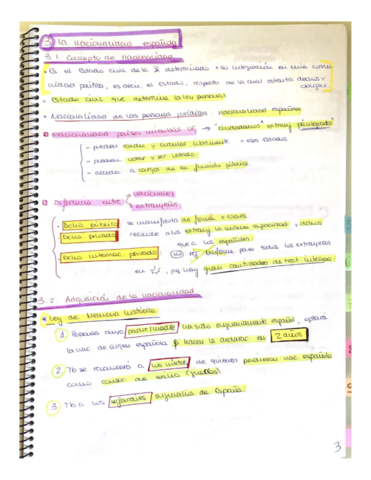 3 La nacionalidad española
3.1. Concepto de nacionalidad
• Es el Estado civil de la determinado x su integración en una comu
nidad política, es decir, el Estado, respecto de la cual ostenta dchos y
• Estado civil que determina la ley personal
• Nacionalidad de las personas jurídicas: nacionalidad española
Nacionalidad países miembros UE → "ciudadanos" extranj privilegiados
- pueden residir y circular libremente x esos Estados
- pueden votar y ser votado
- acceden a cargos de la función pública
Diferencia entre nacionales
extranjeros
• Dcho público: se manifiesta de
Dcho privado: reconoce a los extranj la misma capacidad y dchos
que a los españoles
Dcho internac privado: no rég uniforme para todos los extranjeros
en, pq hay gran cantidades de trat. internac
3.2 Adquisición de la nacionalidad
• Ley de Memoria Histórica
1. Personas cuyo padre/madre ha sido originariamente español, optará
la nac de origen española si hacen la declarac en 2 años
2. Tb se reconocerá a los nietos de quienes perdieron nac española
como conser de exilio
3. Tb a los sefardíes originarios de España
3